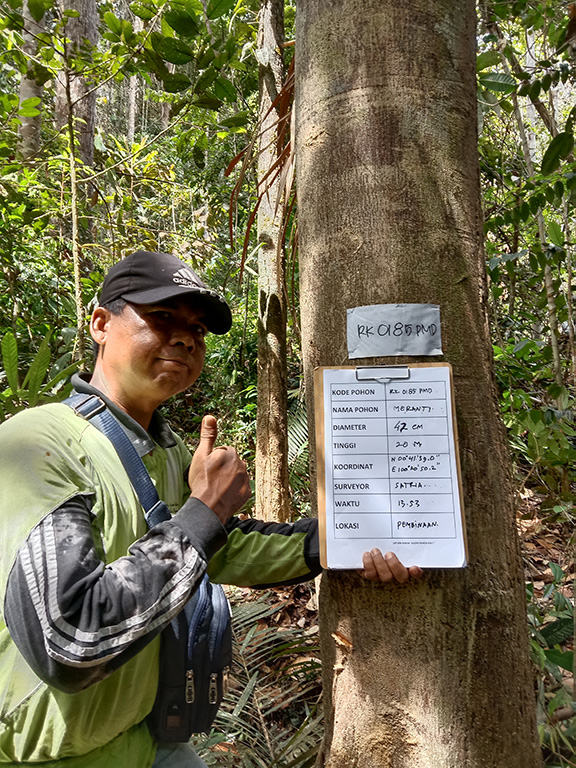 adidas
RK 0185 PMD
KODE POHON RK 0185 PMD...
NAMA POHON MERANTI...
DIAMETER 47 CM
TINGGI 20 M
KOORDINAT N 00°45'39.0"
E 100°40'50.2"
SURVEYOR SATRIA....
WAKTU 13.53
LOKASI PEMBINAAN.